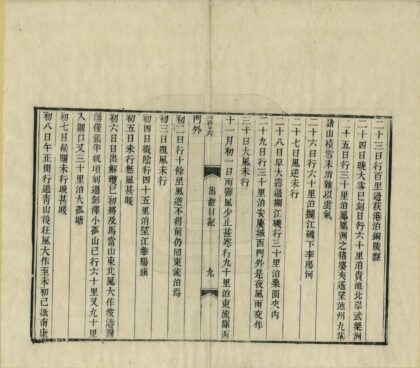 二十三日行百里過荻港泊銅陵縣
二十四日大雪巳刻日行六十里泊貴池北岸武梁洲
二十五日行三十里泊鳳凰洲之婆夾遙望池州九華
諸山積雪未消雜以雲氣
二十六日行六十里泊攔江磯下李陽河
二十七日風逆未行
二十八日早大霧過攔江磯行三十里泊棗園夾內
二十九日行三十里泊安慶城西門外是夜風雨交作
三十日大風未行
十一月初一日雨霽風少止甚寒行九十里泊東流縣西
門外
日記
九
初二日行十餘里風逆不得前仍回東流泊焉
初三日阻風未行
初四日後陰行四十五里泊望江華陽鎮
初五日未行無風甚暖
初六日日出解纜巳初將及馬當山東北風大作波濤洶
湧僅張半帆頃刻過彭澤小孤山巳行六十里又九十里
入湖口又三十里泊大孤塘
初七日候關未行晚甚暖
初八日午正開行過青山後狂風大作至未初已抵南康